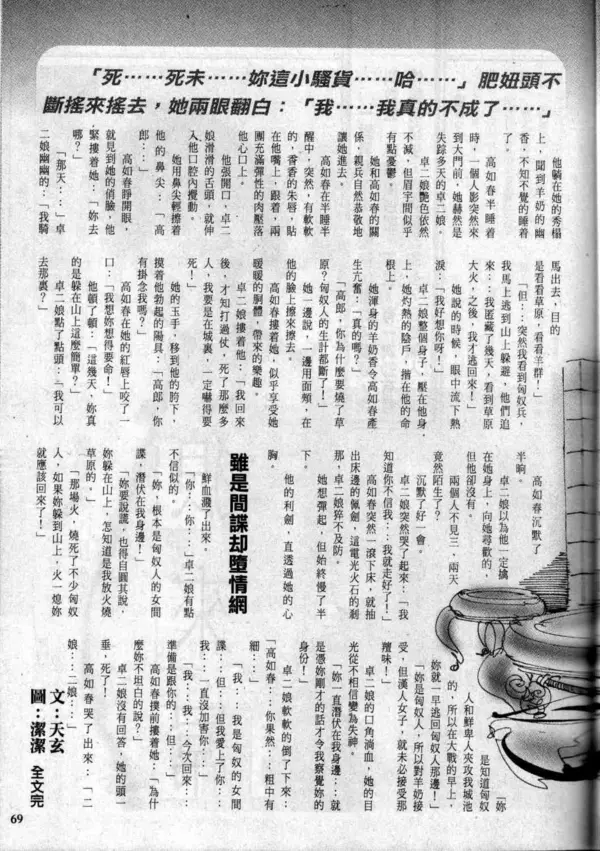 「死……死未……妳這小騷貨……哈……」肥妞頭不
斷搖來搖去，她兩眼翻白：「我……我真的不成了……」
他躺在她的秀榻
上，聞到羊奶的幽
香，不知不覺的睡着
了。
高如春半睡着
時，一個人影突然來
到大門前，她赫然是
失踪多天的卓二娘。
卓二娘艷色依然
不減，但眉宇間似乎
有點憂鬱。
她和高如春的關
係，親兵自然恭敬地
讓她進去。
高如春在半睡半
醒中，突然，有軟軟
的，香香的朱唇，貼
在他嘴上，跟着，兩
團充滿彈性的肉壓落
他心口上。
他張開口，卓二
娘滑滑的舌頭，就伸
入他口腔內攪動。
她用鼻尖輕擦着
他的鼻尖：「高
郎……」
高如春睜開眼，
就見到她的俏臉，他
緊摟着她：「妳去
嗎？」
「那天……」卓
二娘幽幽的：「我騎
馬出去，目的
是看看草原，看看羊群！」
「但……突然我看到匈奴兵，
我馬上逃到山上躲避，他們追
來……我匿藏了幾天，看到草原
大火，之後，我才逃回來！」
她說的時候，眼中流下熱
淚：「我好想你呀！」
卓二娘整個身子，壓在他身
上，她灼熱的陰戶，揩在他的命
根上。
她渾身的羊奶香令高如春產
生亢奮：「真的嗎？」
「高郎，你為什麼要燒了草
原？匈奴人的生計都斷了！」
她一邊說，一邊用面頰，在
他的臉上擦來擦去。
高如春摟着她，似乎享受她
暖暖的胴體，帶來的樂趣。
卓二娘摟着他：「我回來
後，才知打過仗，死了那麼多
人，我要是在城裏，一定嚇得要
死！」
她的玉手，移到他的胯下，
摸着他勃起的陽具：「高郎，你
有掛念我嗎？」
高如春在她的紅唇上咬了一
口：「我想妳想得要命！」
他頓了頓：「這幾天，妳真
的是躲在山上這麼簡單？」
卓二娘點了點頭：「我可以
去那裏？」
高如春沉默了
半晌。
卓二娘以為他一定擒
在她身上，向她尋歡的，
但他卻沒有。
兩個人不見三、兩天
竟然陌生了？
沉默了好一會。
卓二娘突然哭了起來：「我
知道你不信我……我就走好了！」
高如春突然一滾下床，就抽
出床邊的佩劍，這電光火石的剎
那，卓二娘猝不及防。
她想彈起，但始終慢了半
下。
他的利劍，直透過她的心
胸。
雖是間諜却墮情網
鮮血濺了出來。
「你……你……」卓二娘有點
不信似的。
「妳，根本是匈奴人的女間
諜，潛伏在我身邊！」
「妳要說謊，也得自圓其說，
妳躲在山上，怎知道是我放火燒
草原的。」
「那場火，燒死了不少匈奴
人，如果妳躲到山上，火一熄妳
就應該回來了！」
「妳
是知道匈奴
人和鮮卑人夾攻我城池
的，所以在大戰的早上，
妳就一早逃回匈奴人那邊！」
「妳是匈奴人，所以對羊奶接
受，但漢人女子，就未必接受那
羶味！」
卓二娘的口角淌血，她的目
光從不相信變為失神。
「妳一直潛伏在我身邊……就
是憑妳剛才的話才令我察覺妳的
身份！」
卓二娘軟軟的倒了下來：
「高如春……你果然……粗中有
細……」
「我……我是匈奴的女間
諜……但……但我愛上了你……
我……一直沒加害你……」
「我……我……今次回來……
準備是跟你的……但……」
高如春撲前摟着她：「為什
麼妳不坦白的說？」
卓二娘沒有回答，她的頭一
垂，死了！
高如春哭了出來：「二
娘……二娘……」
文：天玄
圖：潔潔 全文完
69